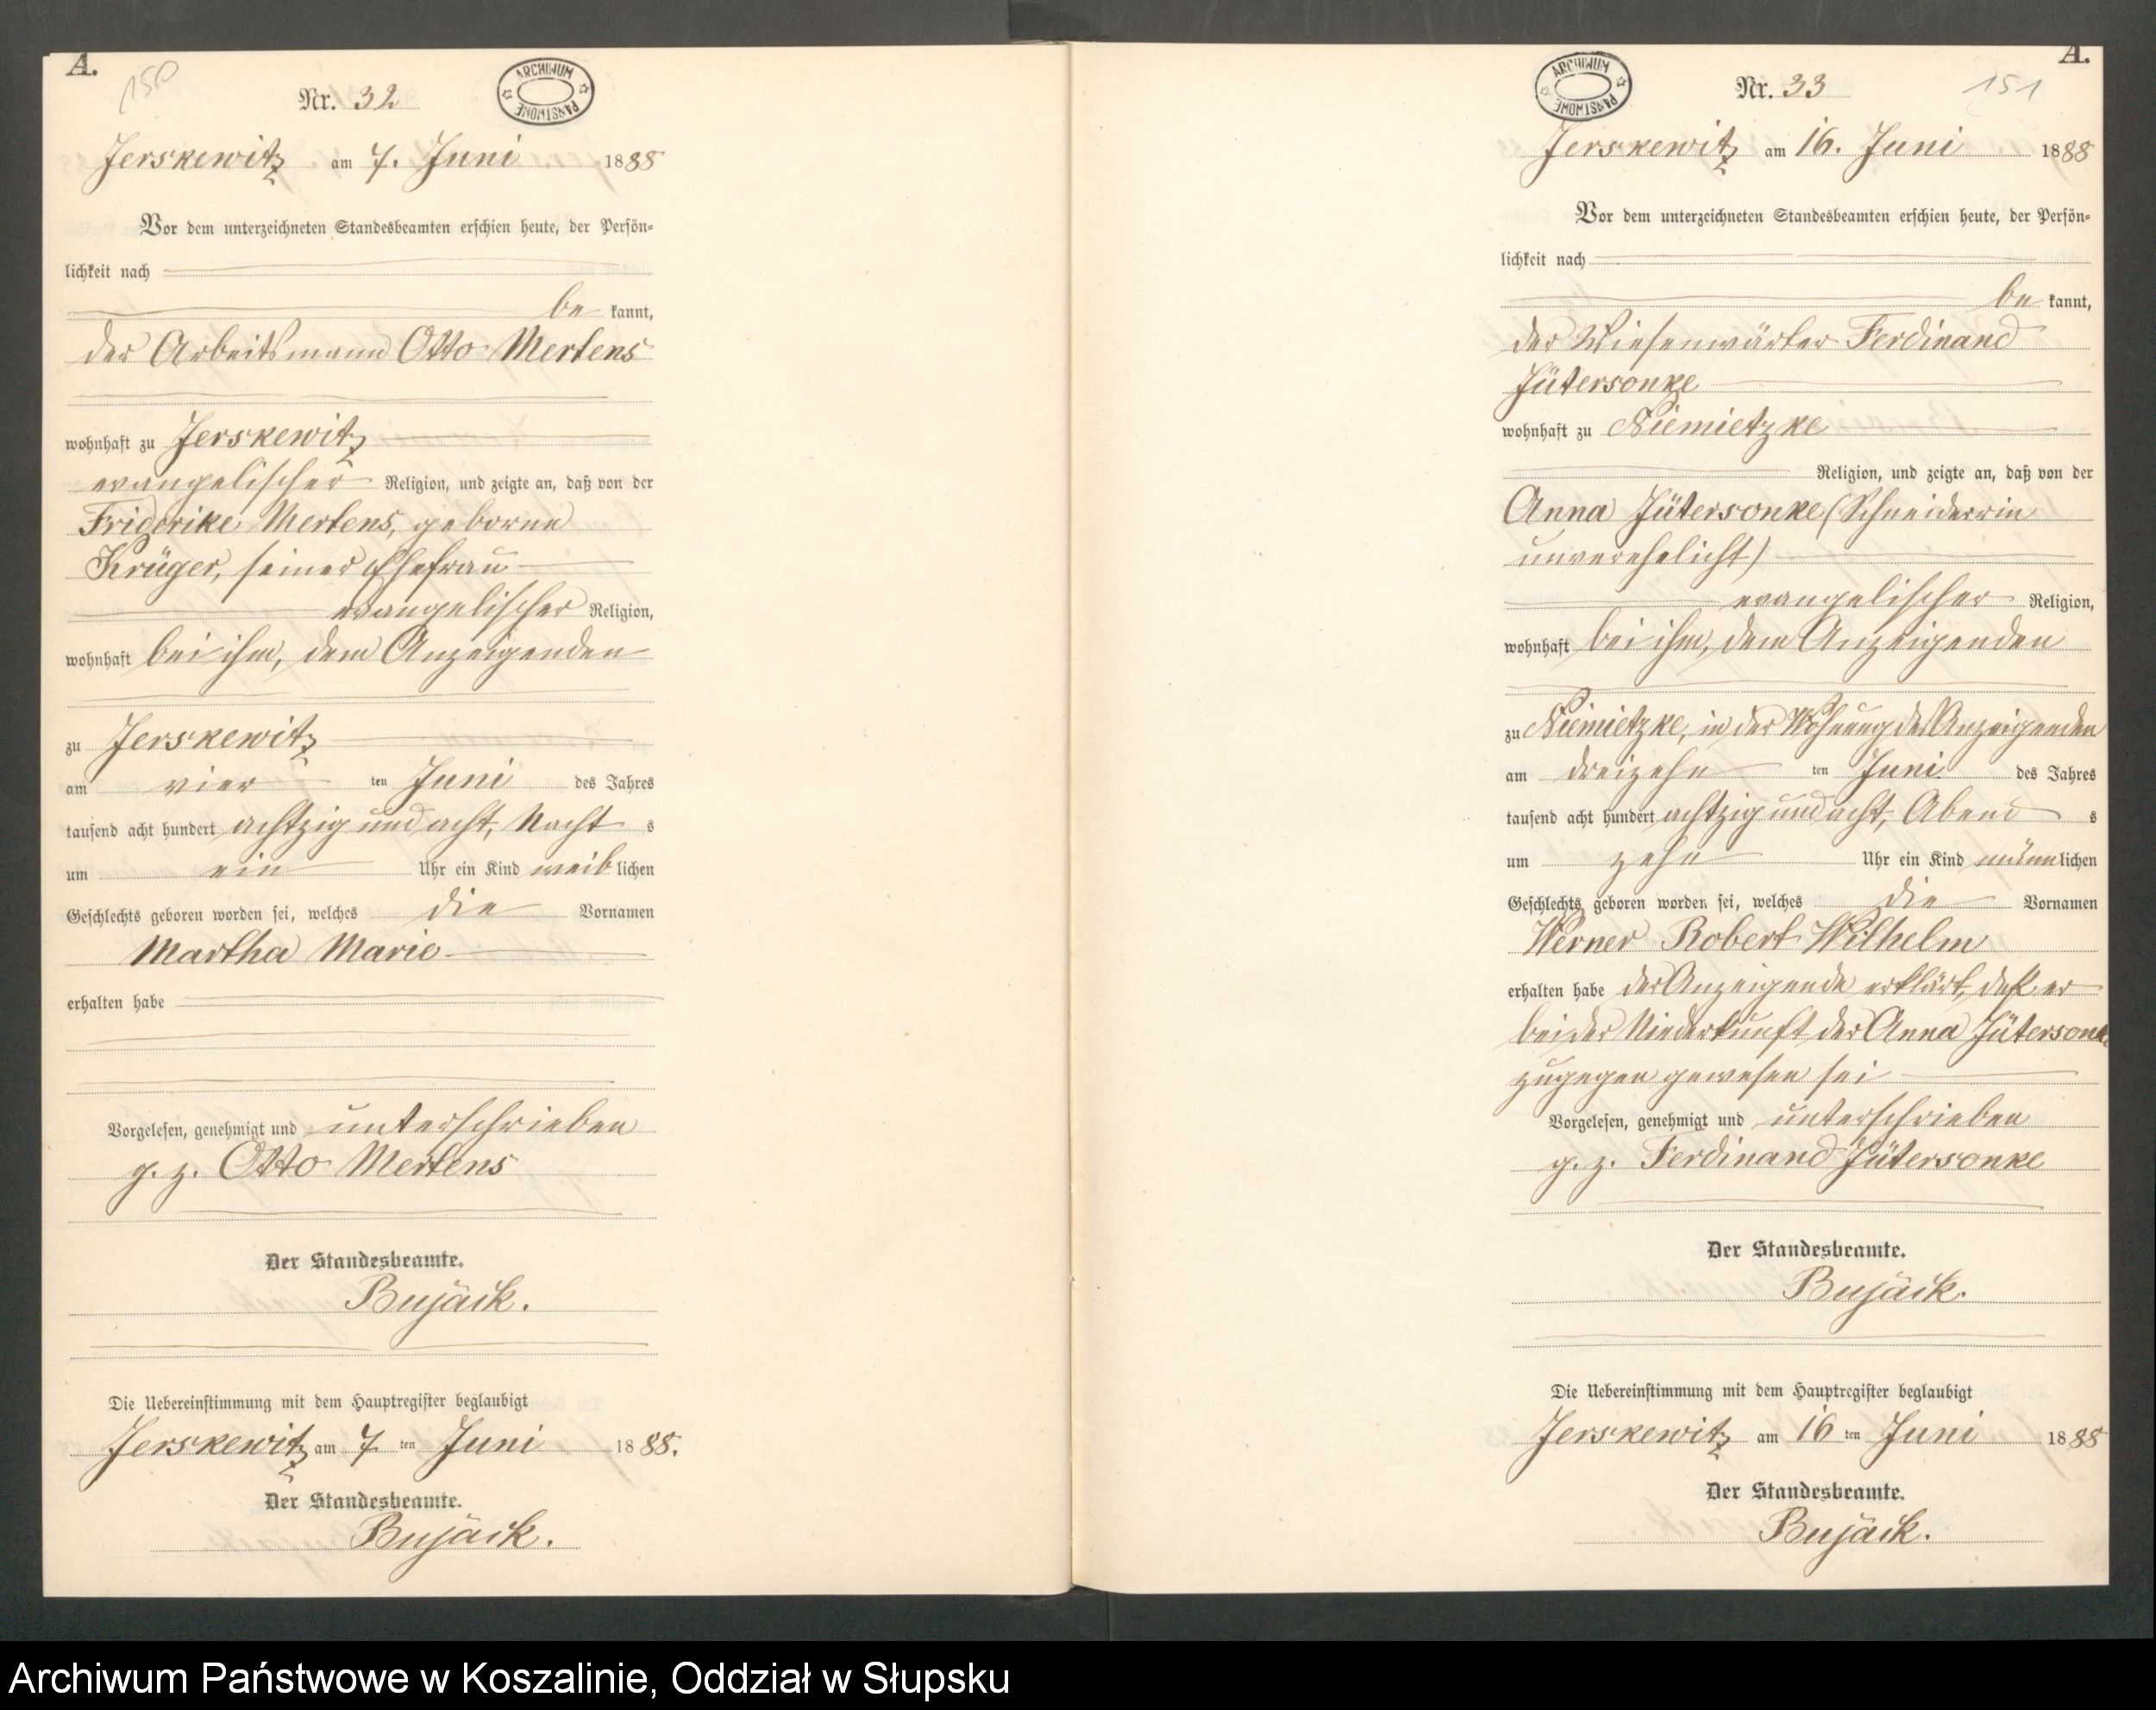 A.
150
Nr. 32
ARCHIWUM PAŃSTWOWE
Jerskewitz am 7. Juni 1888
Vor dem unterzeichneten Standesbeamten erschien heute, der Persön-
lichkeit nach
be kannt,
der Arbeitsmann Otto Mertens
wohnhaft zu Jerskewitz
evangelischer Religion, und zeigte an, daß von der
Friderike Mertens, geborne
Krüger, seiner Ehefrau
evangelischer Religion,
wohnhaft bei ihm, dem Anzeigenden
zu Jerskewitz
am vier ten Juni des Jahres
tausend acht hundert achtzig und acht, Nacht s
um ein Uhr ein Kind weib lichen
Geschlechts geboren worden sei, welches die Vornamen
Martha Marie
erhalten habe
Vorgelesen, genehmigt und unterschrieben
g. z. Otto Mertens
Der Standesbeamte.
Bujäck.
Die Uebereinstimmung mit dem Hauptregister beglaubigt
Jerskewitz am 7 ten Juni 1888.
Der Standesbeamte.
Bujäck.
A.
151
Nr. 33
ARCHIWUM PAŃSTWOWE
Jerskewitz am 16. Juni 1888
Vor dem unterzeichneten Standesbeamten erschien heute, der Persön-
lichkeit nach
be kannt,
der Wiesenwärter Ferdinand
Jütersonke
wohnhaft zu Niemietzke
Religion, und zeigte an, daß von der
Anna Jütersonke (Schneiderin
unverehelicht)
evangelischer Religion,
wohnhaft bei ihm, dem Anzeigenden
zu Niemietzke, in der Wohnung des Anzeigenden
am dreizehn ten Juni des Jahres
tausend acht hundert achtzig und acht, Abend s
um zehn Uhr ein Kind männlichen
Geschlechts geboren worden sei, welches die Vornamen
Werner Robert Wilhelm
erhalten habe der Anzeigende erklärt, daß er
bei der Niederkunft der Anna Jütersonke
zugegen gewesen sei
Vorgelesen, genehmigt und unterschrieben
g. z. Ferdinand Jütersonke
Der Standesbeamte.
Bujäck.
Die Uebereinstimmung mit dem Hauptregister beglaubigt
Jerskewitz am 16 ten Juni 1888
Der Standesbeamte.
Bujäck.
Archiwum Państwowe w Koszalinie, Oddział w Słupsku